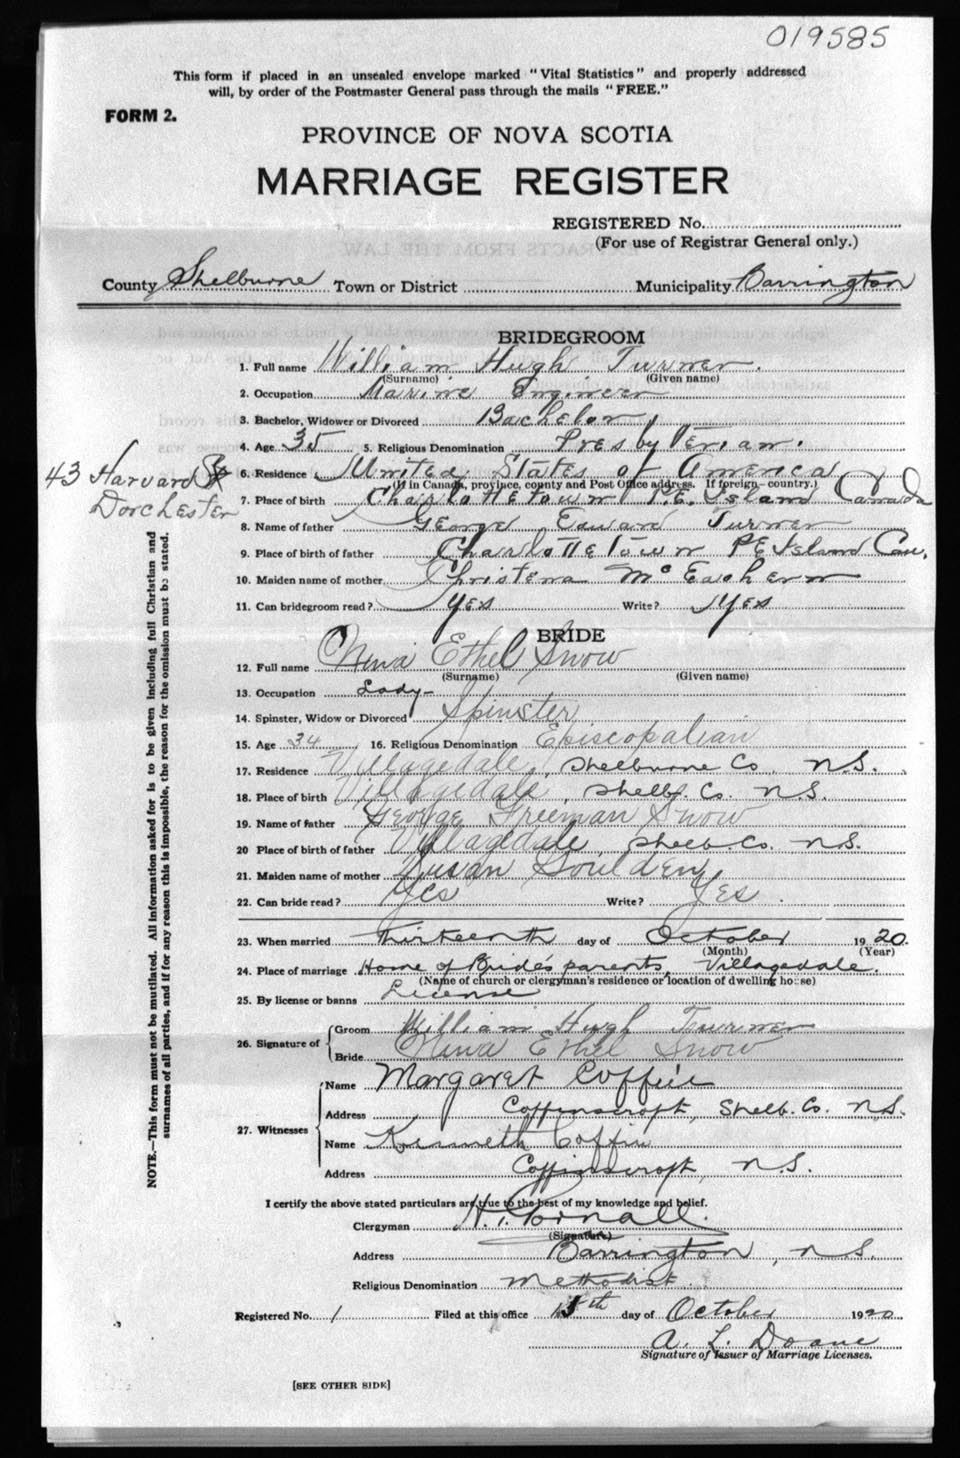 019585
This form if placed in an unsealed envelope marked "Vital Statistics" and properly addressed
will, by order of the Postmaster General pass through the mails "FREE."
FORM 2.
PROVINCE OF NOVA SCOTIA
MARRIAGE REGISTER
REGISTERED No.
(For use of Registrar General only.)
County Shelburne Town or District Municipality Barrington
BRIDEGROOM
1. Full name William Hugh Turner.
(Surname) (Given name)
2. Occupation Marine Engineer
3. Bachelor, Widower or Divorced Bachelor
4. Age 35 5. Religious Denomination Presbyterian.
43 Harvard St
Dorchester
6. Residence United States of America
(If in Canada, province, county and Post Office address. If foreign—country.)
7. Place of birth Charlottetown P.E. Island Canada
8. Name of father George Edward Turner
9. Place of birth of father Charlottetown PE Island Can.
10. Maiden name of mother Christena McEachern
11. Can bridegroom read? Yes Write? Yes
BRIDE
12. Full name Nina Ethel Snow
(Surname) (Given name)
13. Occupation Lady-
14. Spinster, Widow or Divorced Spinster
15. Age 34 16. Religious Denomination Episcopalian
17. Residence Villagedale, Shelburne Co. N.S.
18. Place of birth Villagedale, Shelb. Co. N.S.
19. Name of father George Freeman Snow
20 Place of birth of father Villagedale, Shelb. Co. N.S.
21. Maiden name of mother Susan Goulden
22. Can bride read? Yes Write? Yes
23. When married Thirteenth day of October 1920.
(Month) (Year)
24. Place of marriage Home of Bride's parents, Villagedale.
(Name of church or clergyman's residence or location of dwelling house)
25. By license or banns License
26. Signature of Groom William Hugh Turner
Bride Nina Ethel Snow
27. Witnesses Name Margaret Coffin
Address Coffinscroft, Shelb. Co. N.S.
Name Kenneth Coffin
Address Coffinscroft, N.S.
I certify the above stated particulars are true to the best of my knowledge and belief.
Clergyman
(Signature)
Address Barrington, N.S.
Religious Denomination Methodist.
Registered No. 1 Filed at this office 15th day of October 1920
A. L. Doane
Signature of Issuer of Marriage Licenses.
[SEE OTHER SIDE]
NOTE.—This form must not be mutilated. All information asked for is to be given including full Christian and
surnames of all parties, and if for any reason this is impossible, the reason for the omission must be stated.